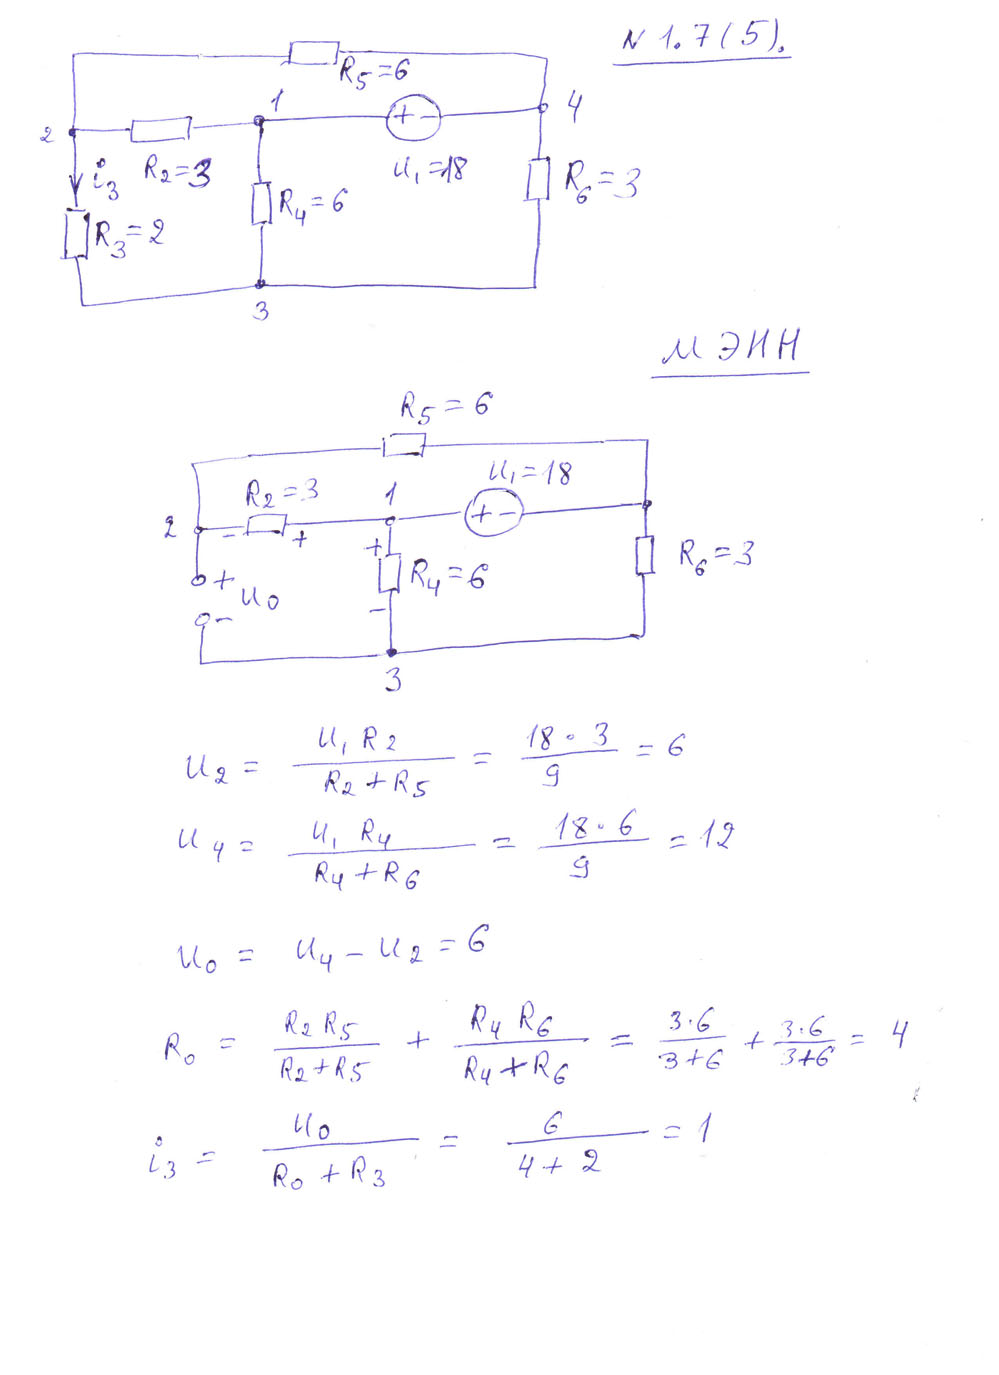 N 1.7(5).
R5=6
1
4
2
R2=3
U1=18
i3
R4=6
R6=3
R3=2
3
МЭИН
R5=6
U1=18
R2=3
1
2
- + +
+ U0
R4=6
R6=3
- -
3
U2 = U1 R2 / R2+R5 = 18·3 / 9 = 6
U4 = U1 R4 / R4+R6 = 18·6 / 9 = 12
U0 = U4 - U2 = 6
R0 = R2 R5 / R2+R5 + R4 R6 / R4+R6 = 3·6 / 3+6 + 3·6 / 3+6 = 4
i3 = U0 / R0+R3 = 6 / 4+2 = 1